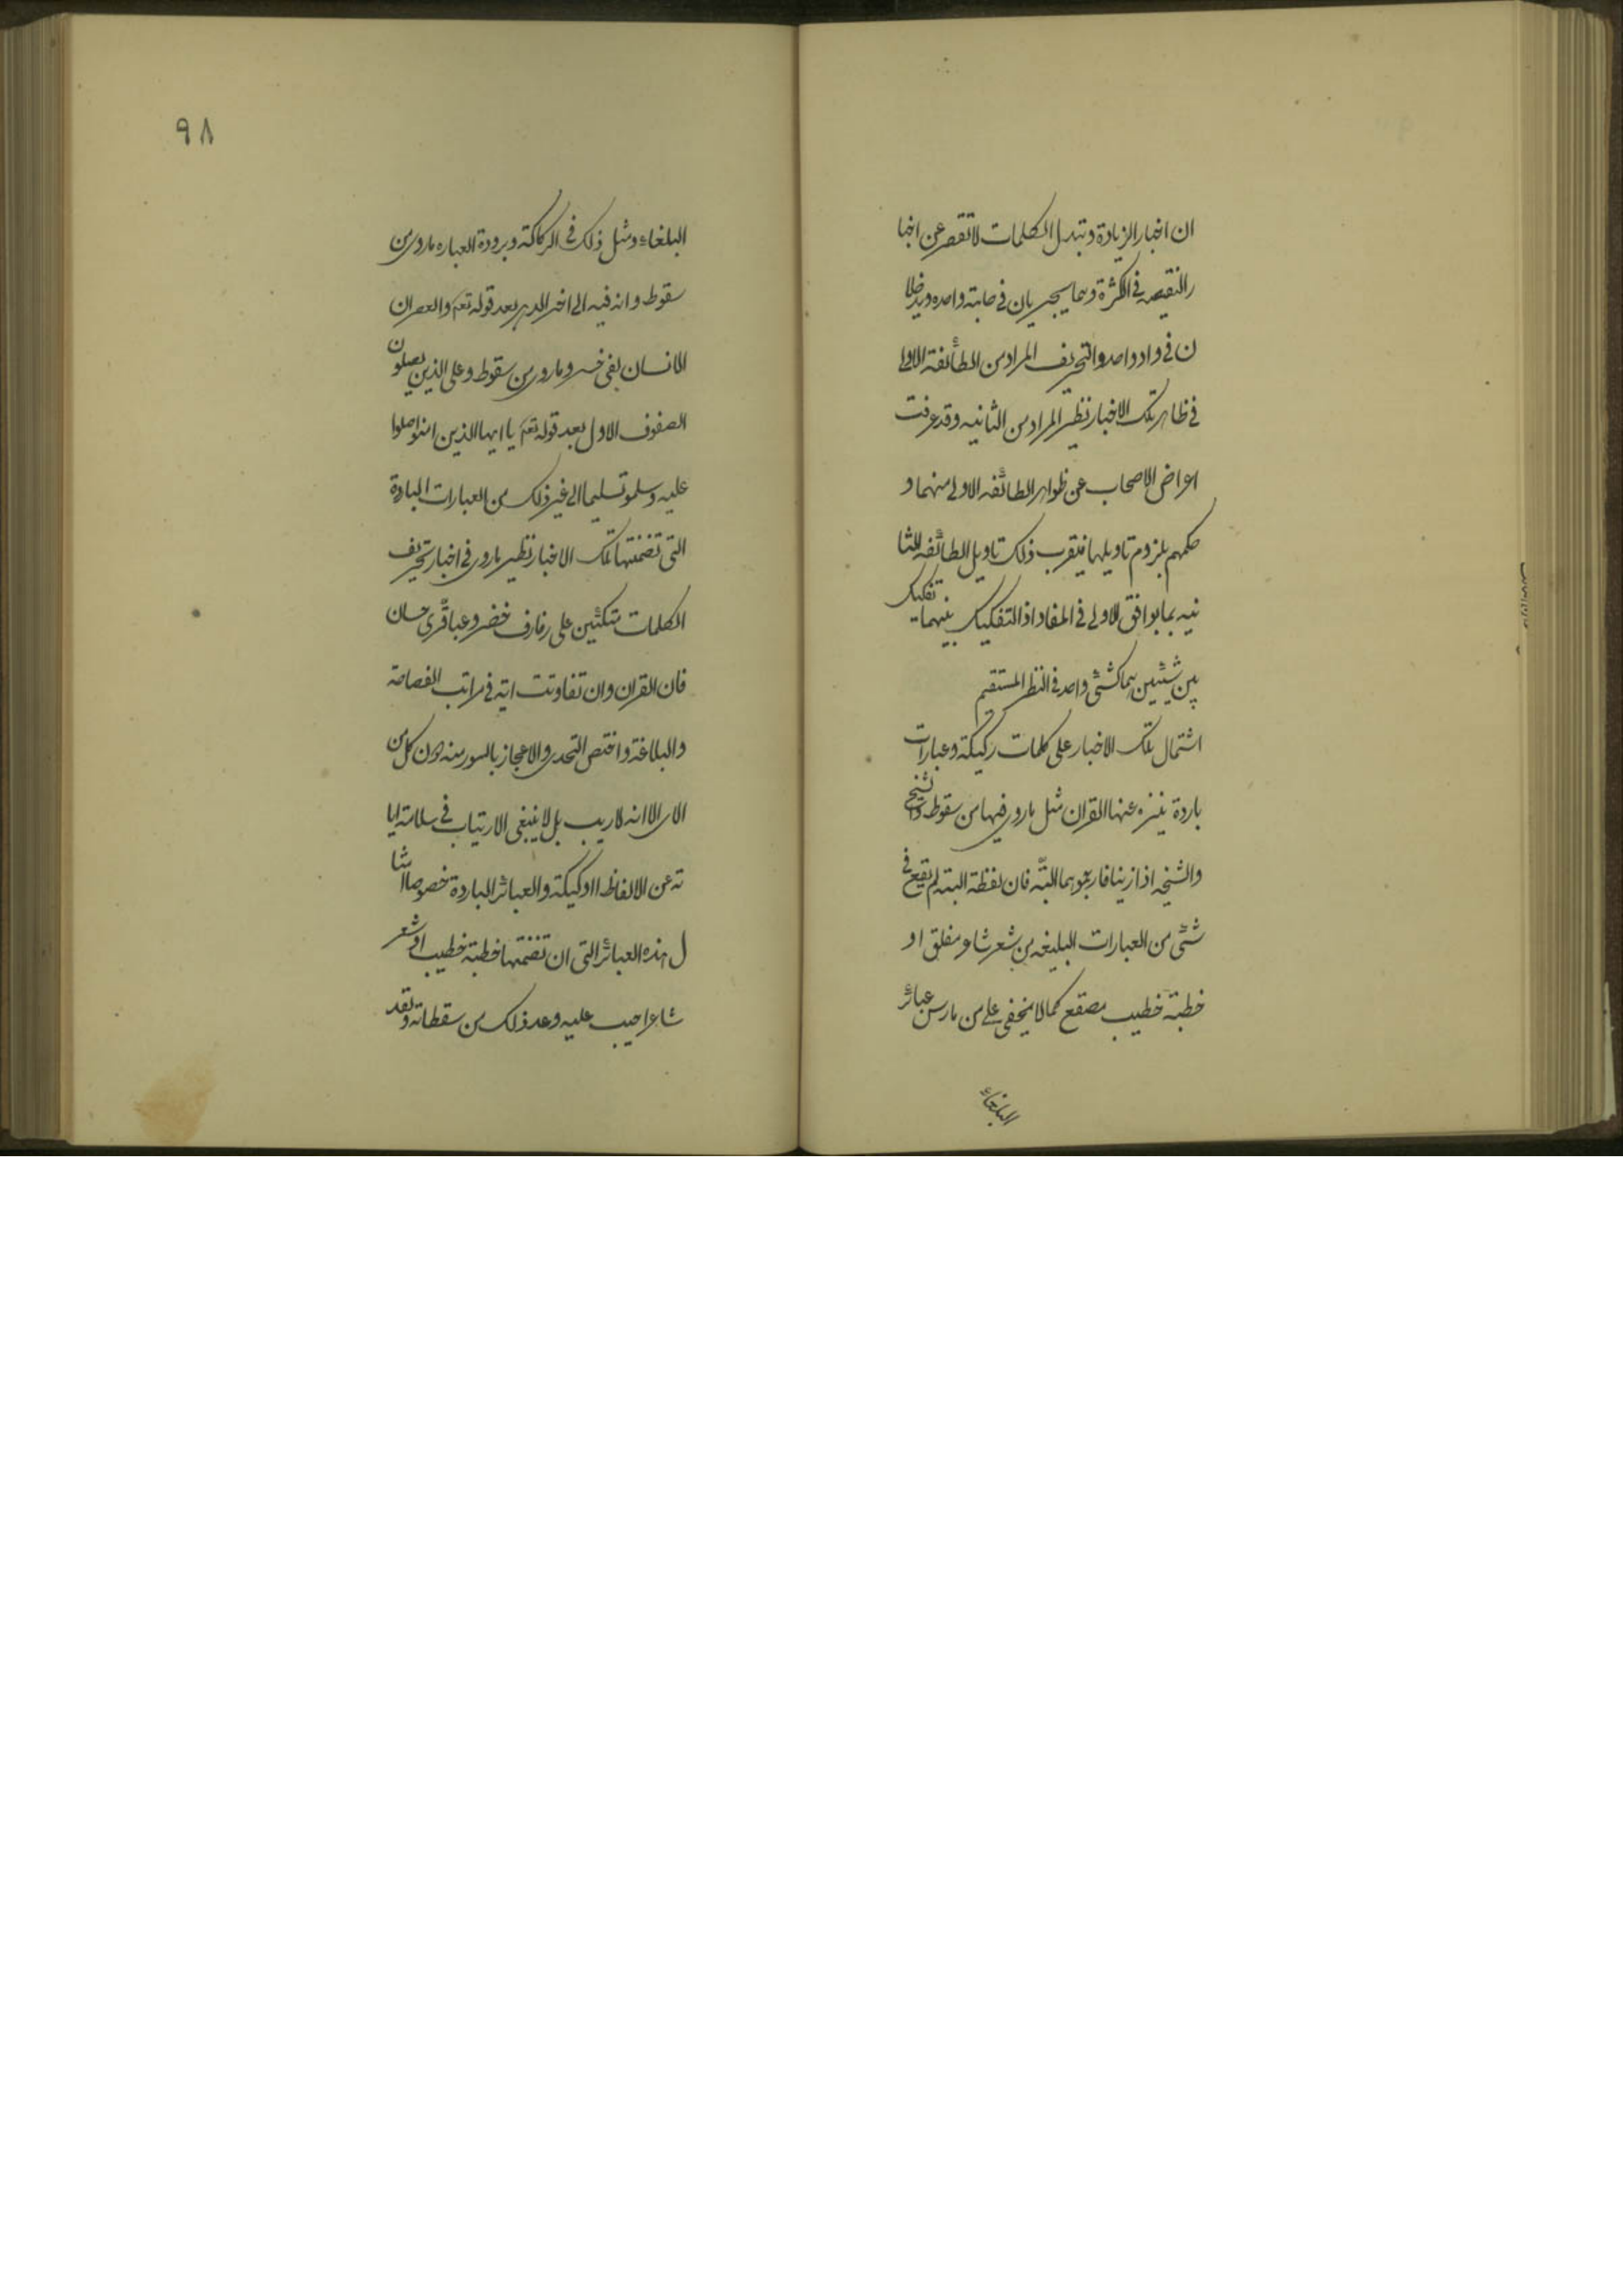 ان اخبار الزيادة و تبدل الكلمات لا تقصر عن اخبا
ر النقيصه فى الكثرة و هما يجريان فى حلبة واحده و يدخلا
ن فى واد واحد و التحريف المراد من الطائفة الاولى
فى ظاهر تلك الاخبار نظير المراد من الثانيه و قد عرفت
اعراض الاصحاب عن ظواهر الطائفه الاولى منهما و
حكمهم بلزوم تاويلها فيقرب ذلك تاويل الطائفه الثا
نيه بما يوافق الاولى فى المفاد اذ التفكيك بينهما تفكيك
بين شيئين هما كشئ واحد فى النظر المستقيم
اشتمال تلك الاخبار على كلمات ركيكة و عبارات
باردة ينزه عنها القران مثل ما روى فيها من سقوط و الشيخ
و الشيخه اذا زنيا فارجموهما البتّه فان لفظة البته لم يقع فى
شئ من العبارات البليغه من شعر شاعر مفلق او
خطبة خطيب مصقع كما لا يخفى على من مارس عبائر
البلغاء
٩٨
البلغاء و مثل ذلك فى الركاكة و برودة العباره ما روى من
سقوط و انه فيه الى اخر الدهر بعد قوله تعم و العصر ان
الانسان لفى خسر و ما روى من سقوط و على الذين يصلون
الصفوف الاول بعد قوله تعم يا ايها الذين امنوا صلوا
عليه و سلموا تسليما الى غير ذلك من العبارات الباردة
التى تضمنتها تلك الاخبار نظير ما روى فى اخبار تحريف
الكلمات متكئين على رفارف خضر و عباقرى حسان
فان القران و ان تفاوتت ايته فى مراتب الفصاحة
و البلاغة و اختص التحدى و الاعجاز بالسور منه دون كل من
الاى الا انه لا ريب بل لا ينبغى الارتياب فى سلامة ايا
ته عن الالفاظ الركيكة و العبائر الباردة خصوصا امثا
ل هذه العبائر التى ان تضمنتها خطبة خطيب او شعر
شاعر اعيب عليه و عد ذلك من سقطاته و لقد